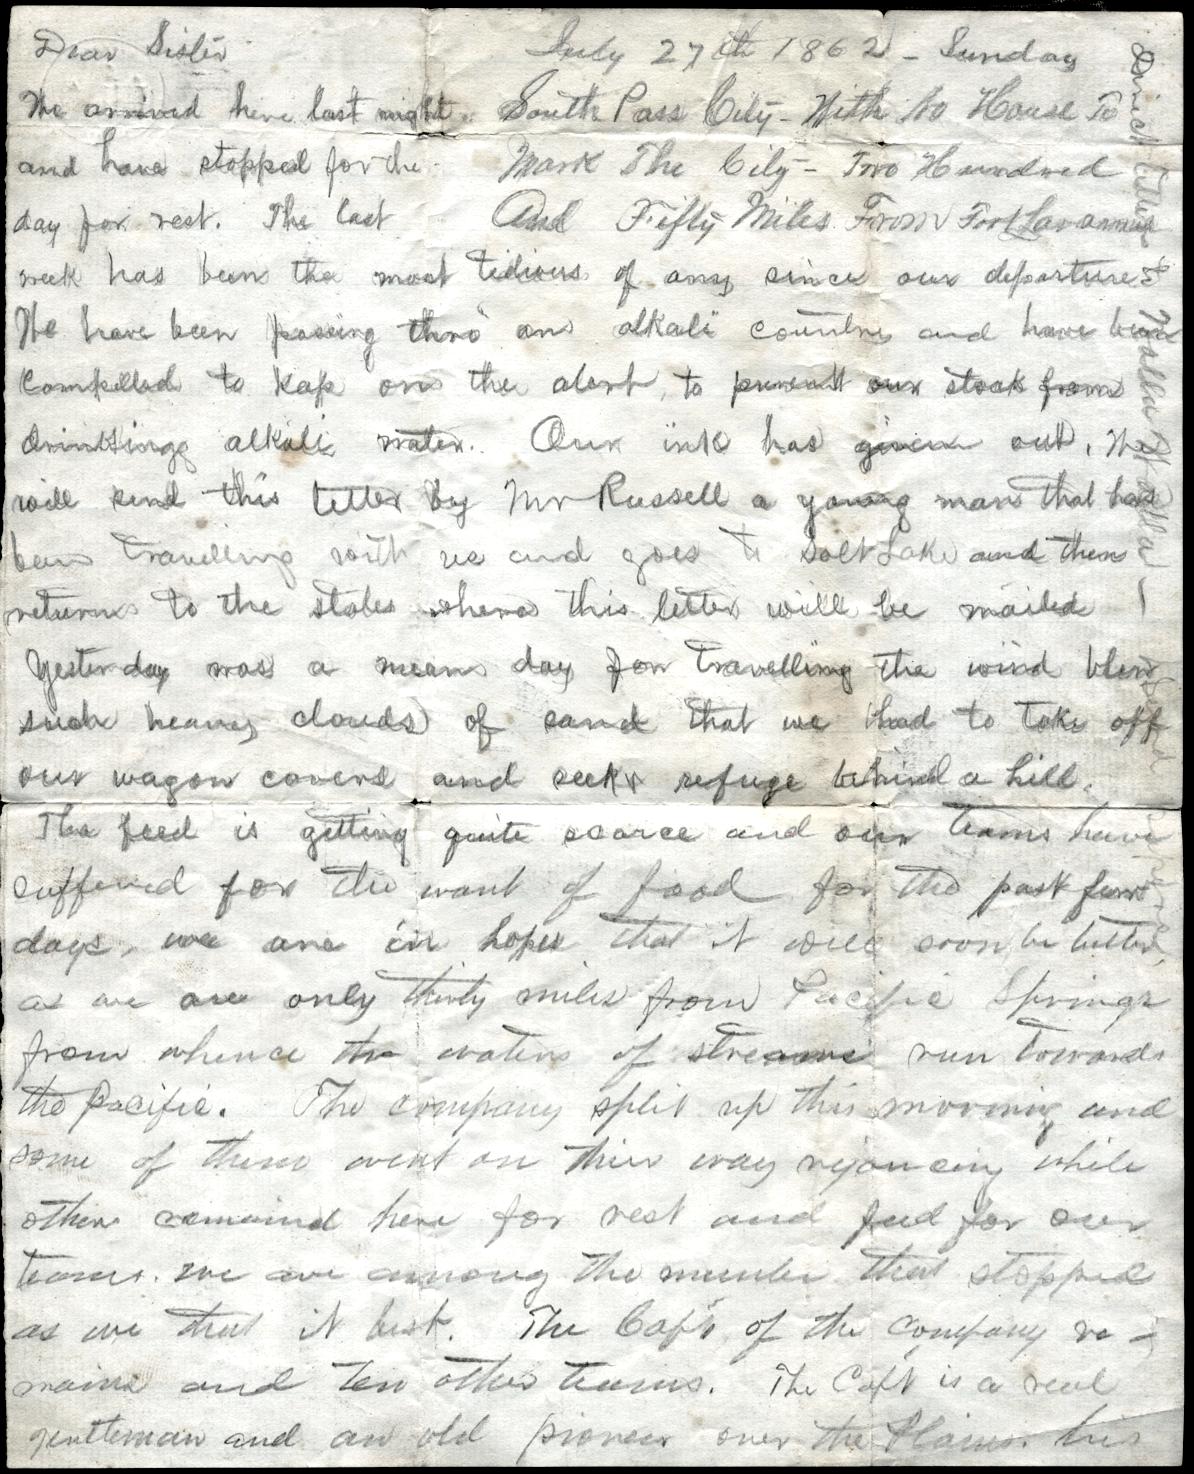 Dear Sister July 27th 1862 - Sunday
We arrived here last night. South Pass City - With No House To
and have stopped for the Mark The City - Two Hundred
day for rest. The last And Fifty Miles From Fort Laramie
week has been the most tidious of any since our departure
We have been passing thro' an alkali country and have been
compelled to keep on the alert, to prevent our stock from
drinking alkali water. Our ink has given out. We
will send this letter by Mr Russell a young man that has
been travelling with us and goes to Salt Lake and then
returns to the states where this letter will be mailed
Yesterday was a mean day for travelling the wind blew
such heavy clouds of sand that we had to take off
our wagon covers and seek refuge behind a hill.
The feed is getting quite scarce and our teams have
suffered for the want of food for the past few
days, we are in hopes that it will soon be better,
as we are only thirty miles from Pacific Springs
from whence the waters of streams run towards
the Pacific. The company split up this morning and
some of them went on their way rejoicing while
others remained here for rest and feed for our
teams. we are among the number that stopped
as we thot it best. The Capt. of the company re-
mains and ten other teams. The Capt is a real
gentleman and an old pioneer over the Plains. his
Letter
Walla Walla